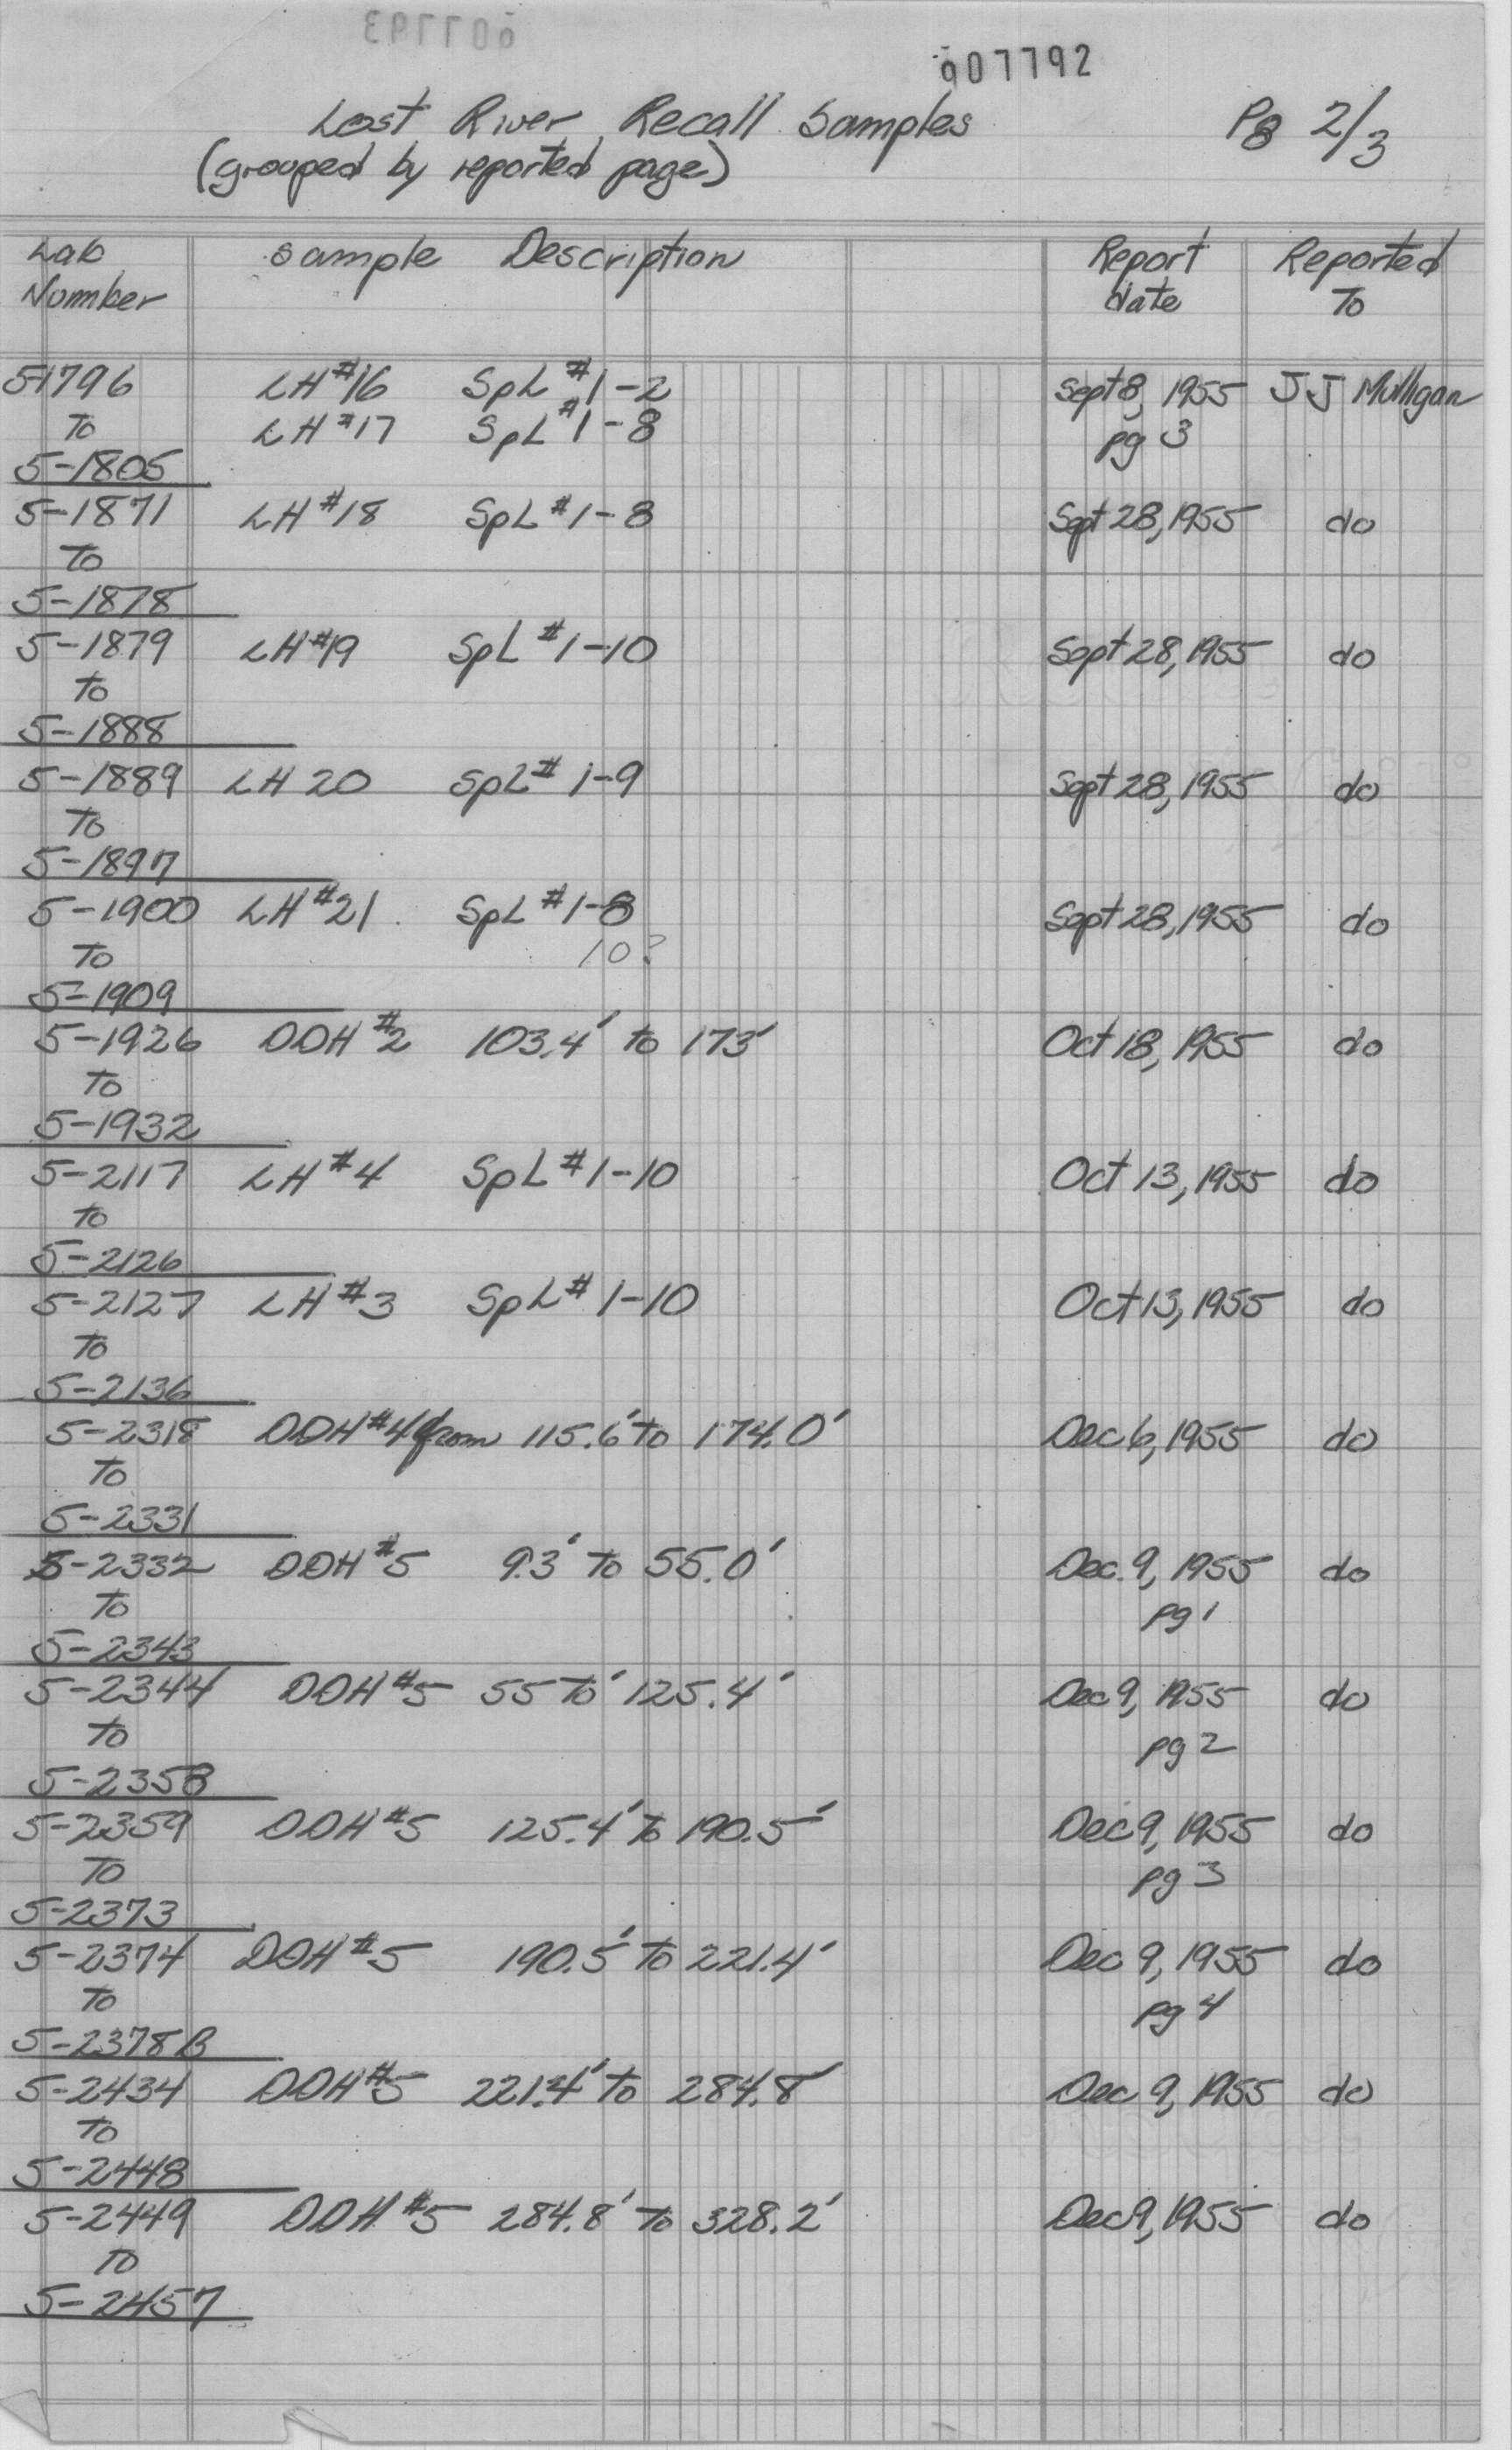 007793
007792
Lost River Recall Samples Pg 2/3
(grouped by reported page)
Lab Sample Description Report Reported
Number date To
5-1796 LH #16 SpL #1-2 Sept 8, 1955 J J Mulligan
To LH #17 SpL #1-8 pg 3
5-1805
5-1871 LH #18 SpL #1-8 Sept 28, 1955 do
To
5-1878
5-1879 LH #19 SpL #1-10 Sept 28, 1955 do
To
5-1888
5-1889 LH 20 SpL # 1-9 Sept 28, 1955 do
To
5-1897
5-1900 LH #21 SpL #1-8 Sept 28, 1955 do
To 10?
5-1909
5-1926 DDH #2 103.4' to 173' Oct 18, 1955 do
To
5-1932
5-2117 LH #4 SpL #1-10 Oct 13, 1955 do
to
5-2126
5-2127 LH #3 SpL # 1-10 Oct 13, 1955 do
To
5-2136
5-2318 DDH #4 from 115.6' to 174.0' Dec 6, 1955 do
To
5-2331
5-2332 DDH #5 9.3' to 55.0' Dec. 9, 1955 do
To pg 1
5-2343
5-2344 DDH #5 55 to' 125.4' Dec 9, 1955 do
To pg 2
5-2358
5-2359 DDH #5 125.4' to 190.5' Dec 9, 1955 do
To pg 3
5-2373
5-2374 DDH #5 190.5' to 221.4' Dec 9, 1955 do
To pg 4
5-2378B
5-2434 DDH #5 221.4' to 284.8' Dec 9, 1955 do
To
5-2448
5-2449 DDH #5 284.8' to 328.2' Dec 9, 1955 do
To
5-2457